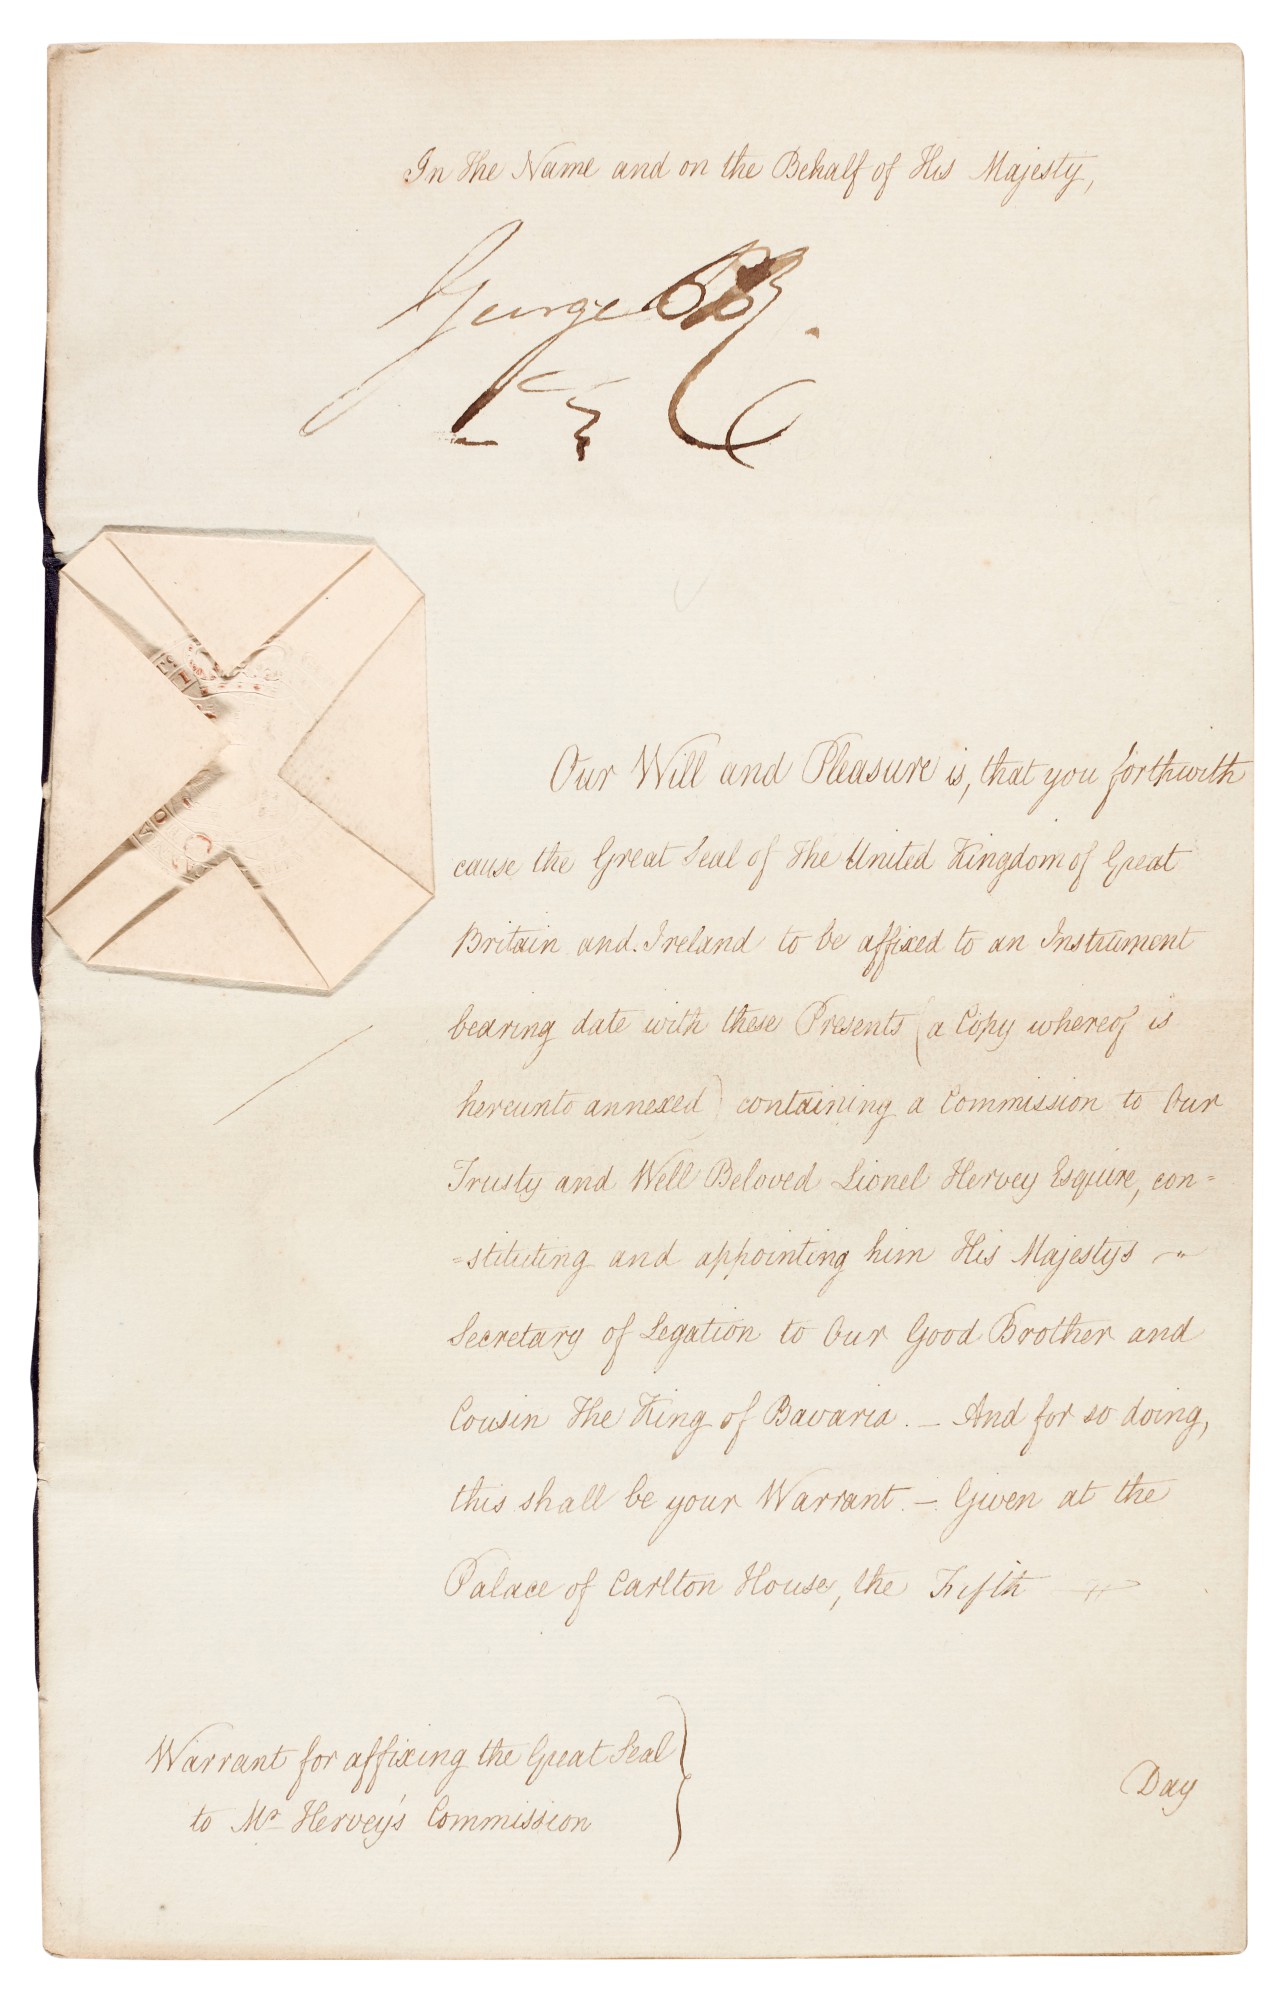 In the Name and on the Behalf of His Majesty,
George PR
Our Will and Pleasure is, that you forthwith
cause the Great Seal of the United Kingdom of Great
Britain and Ireland to be affixed to an Instrument
bearing date with these Presents (a Copy whereof is
hereunto annexed) containing a Commission to Our
Trusty and Well Beloved Lionel Hervey Esquire, con=
=stituting and appointing him His Majesty's
Secretary of Legation to Our Good Brother and
Cousin the King of Bavaria. — And for so doing,
this shall be your Warrant. — Given at the
Palace of Carlton House, the Fifth
Warrant for affixing the Great Seal
to Mr Hervey's Commission
Day